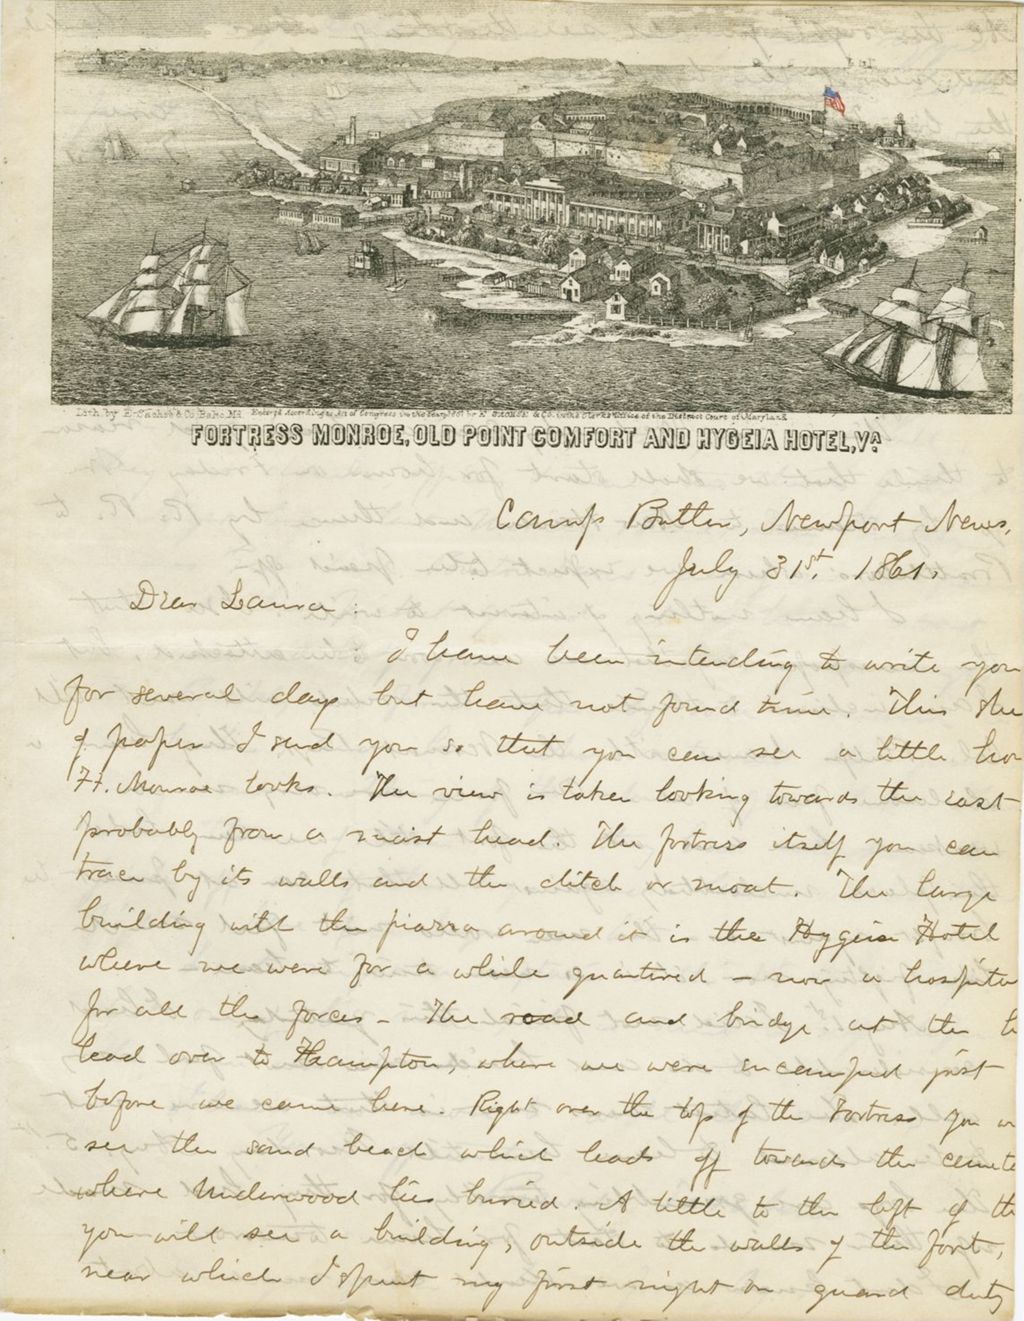 Lith. by E. Sachse & Co. Balto. Md. Entered According to Act of Congress in the Year 1861 by E. SACHSE & CO. in the Clerks Office of the District Court of Maryland
FORTRESS MONROE, OLD POINT COMFORT AND HYGEIA HOTEL, VA
Camp Butler, Newport News,
July 31st. 1861.
Dear Laura:
I have been intending to write you
for several days but have not found time. This she
of paper I send you so that you can see a little how
Ft. Monroe looks. The view is taken looking towards the east
probably from a mast head. The fortress itself you can
trace by its walls and the ditch or moat. The large
building with the piazza around it is the Hygeia Hotel
where we were for a while quartered – now a hospita
for all the forces – The road and bridge at the l
lead over to Hampton, where we were encamped just
before we came here. Right over the top of the Fortress you
see the sand beach which leads off towards the cemete
where Underwood lies buried. A little to the left of th
you will see a building, outside the walls of the fort,
near which I spent my first night on guard duty